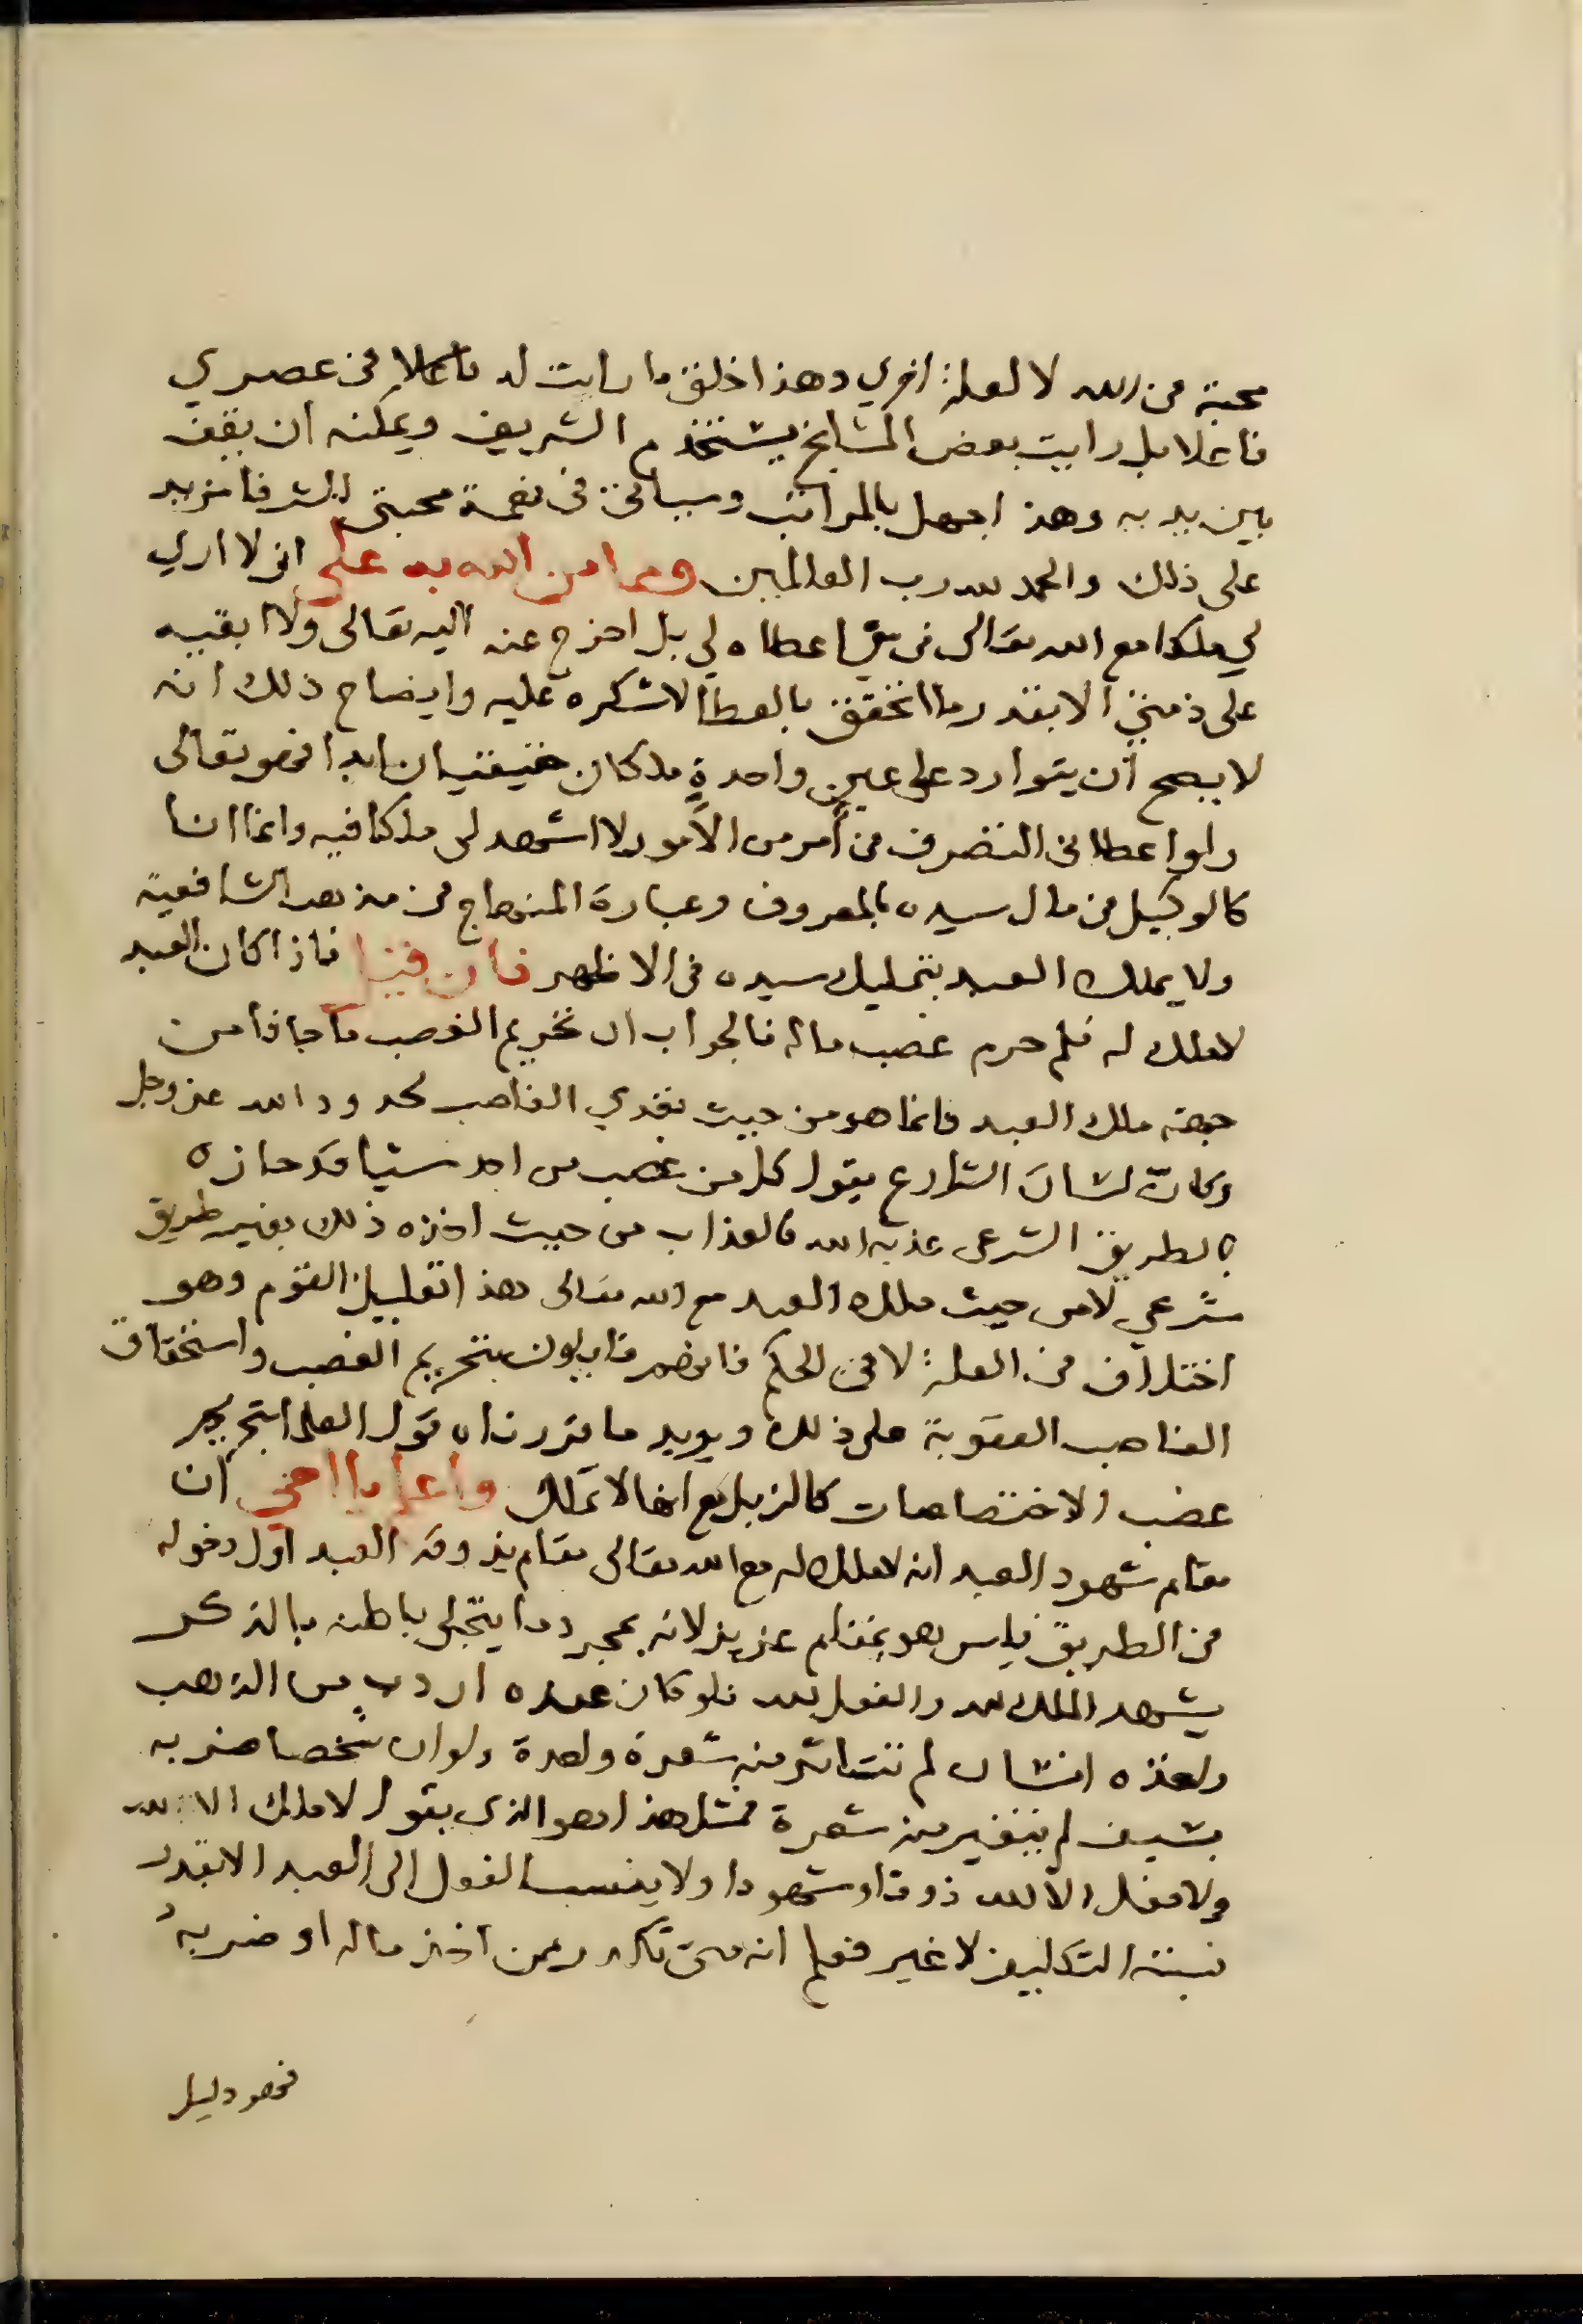 محبة في الله لا لعلة اخري وهذا خلق ما رايت له فاعلا في عصري
فاعلا بل رايت بعض المشايخ يستخدم الشريف ويمكنه ان يقف
بين يديه وهذا جهل بالمراتب وسياتي في نعمة محبتي للشرفا مزيد
على ذلك والحمد لله رب العالمين ومما من الله به علي اني لا اري
لي ملكا مع الله تعالى في شي اعطاه لي بل اخرج عنه اليه تعالى ولا ابقيه
على ذمتي الا بقدر ما اتحقق بالعطا لاشكره عليه وايضاح ذلك انه
لا يصح ان يتوارد على عين واحدة ملكان حقيقيان ابدا فهو تعالى
ولو اعطاني التصرف في أمر من الأمور لا اشهد لي ملكا فيه وانما انا
كالوكيل في مال سيده بالمعروف وعبارة المنهاج في مذهب الشافعية
ولا يملك العبد بتمليك سيده في الاظهر فان قيل فاذا كان العبد
لا ملك له فلم حرم غصب ماله فالجواب ان تحريم الغصب ما جافا من
جهة ملك العبد فانما هو من حيث تعدي الغاصب لحدود الله عز وجل
وكان لسان الشارع يقول كل من غصب من احد شيا قد حازه
بالطريق الشرعي عذبه الله فالعذاب من حيث اخذه ذلك بغير طريق
شرعي لا من حيث ملك العبد مع الله تعالى هذا تعليل القوم وهو
اختلاف في العلة لا في الحكم فانهم قايلون بتحريم الغصب واستحقاق
الغاصب العقوبة على ذلك ويويد ما قررناه قول العلما بتحريم
غصب الاختصاصات كالزبل مع انها لا تملك واعلم يا اخي ان
مقام شهود العبد انه لا ملك له مع الله تعالى مقام يذوقه العبد اول دخوله
في الطريق فليس هو بمقام عزيز لانه بمجرد ما يتجلى باطنه بالذكر
يشهد الملك لله والفعل لله فلو كان عنده اردب من الذهب
واخذه انسان لم تتاثر منه شعرة واحدة ولو ان شخصا ضربه
بسيف لم يتغير منه شعرة فمثل هذا هو الذي يقول لا ملك الا لله
ولا فعل الا لله ذوقا وشهودا ولا ينسب الفعل الى العبد الا بقدر
نسبة التكليف لا غير فعلم انه متى تكدر ممن اخذ ماله او ضربه
فهو دليل